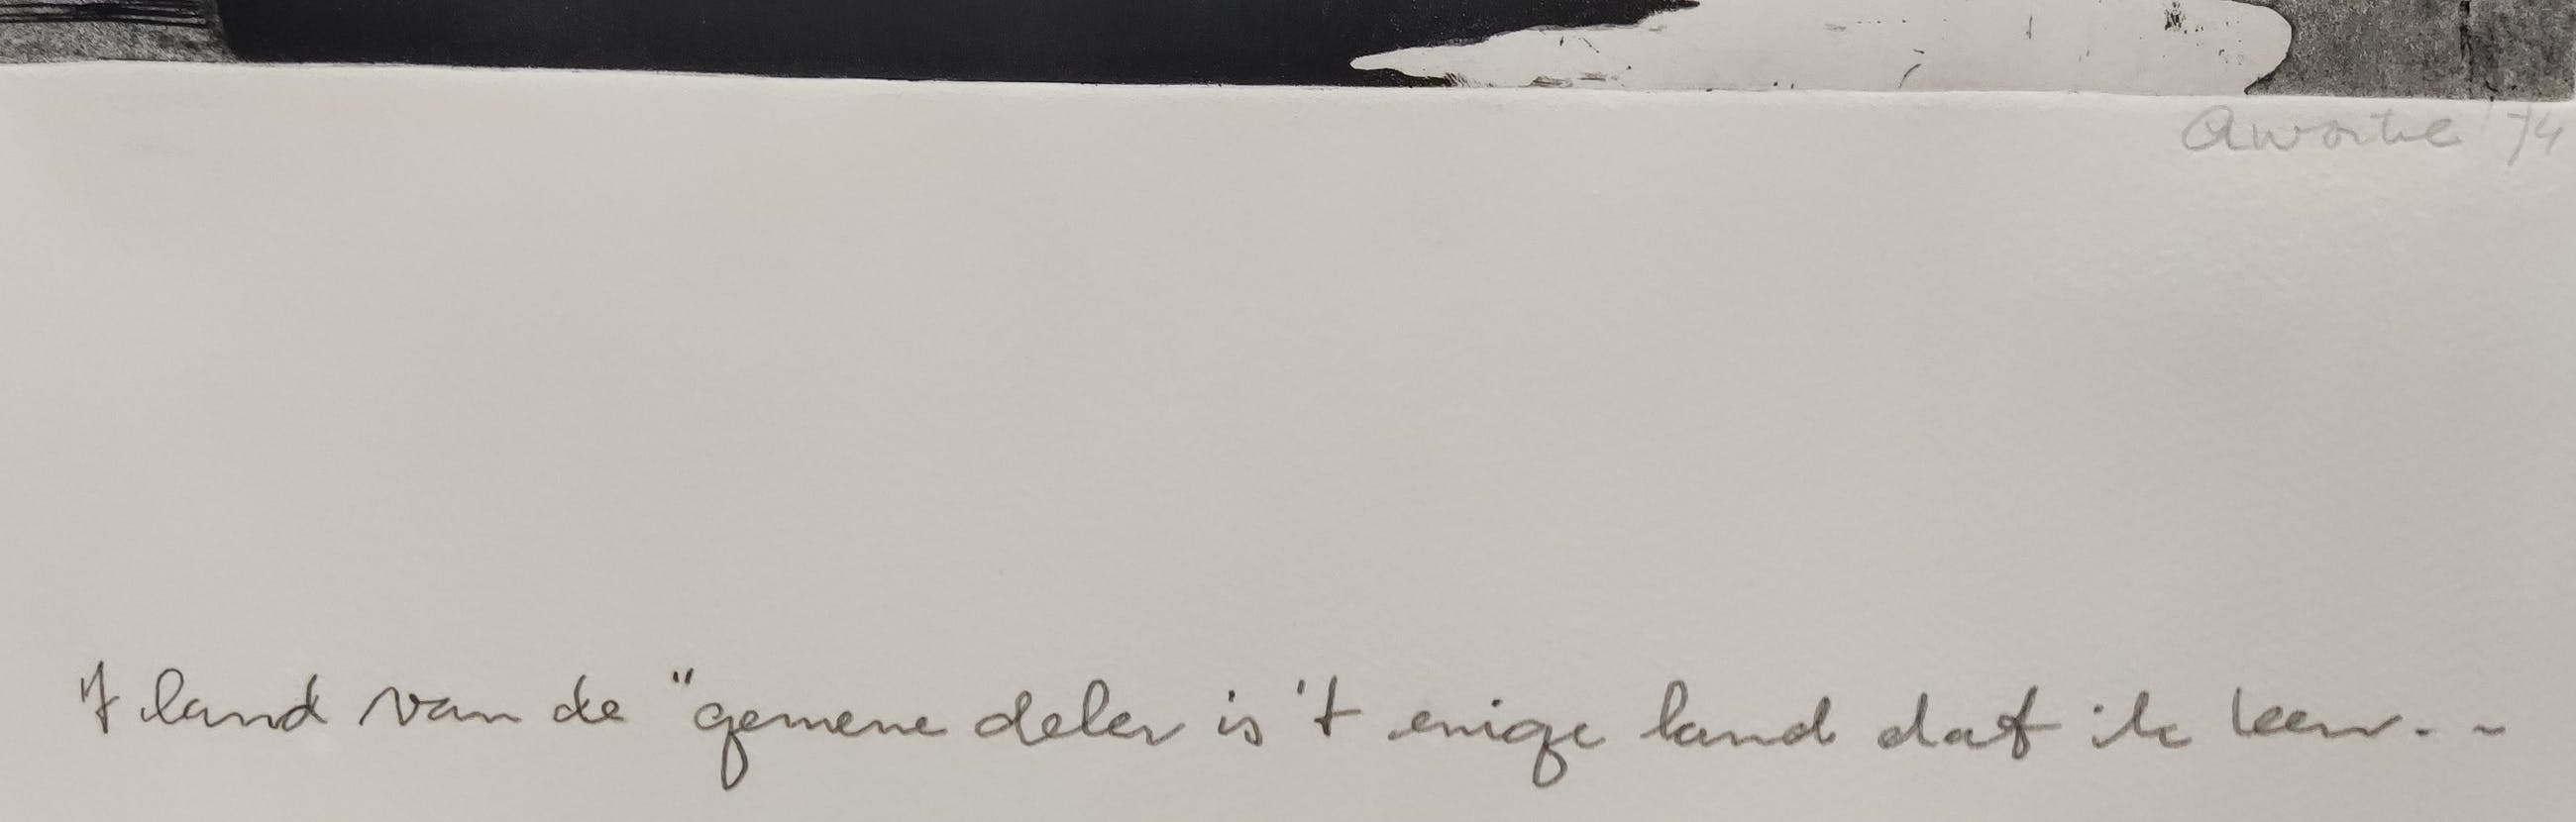 '74
't land van de "gemene deler is 't enige land dat ik ken..